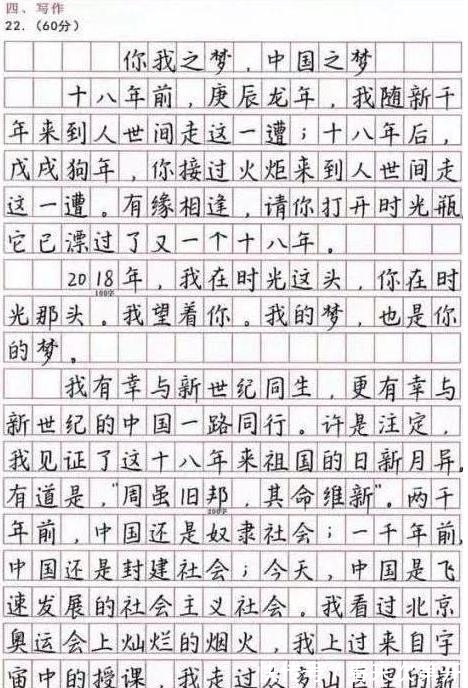 四、写作
22.（60分）
你我之梦，中国之梦
十八年前，庚辰龙年，我随新千
年来到人世间走这一遭；十八年后，
戊戌狗年，你接过火炬来到人世间走
这一遭。有缘相逢，请你打开时光瓶
它已漂过了又一个十八年。
2018年，我在时光这头，你在时
100字
光那头。我望着你。我的梦，也是你
的梦。
我有幸与新世纪同生，更有幸与
新世纪的中国一路同行。许是注定，
我见证了这十八年来祖国的日新月异。
有道是，“周虽旧邦，其命维新”。两千
200字
年前，中国还是奴隶社会；一千年前，
中国还是封建社会；今天，中国是飞
速发展的社会主义社会。我看过北京
奥运会上灿烂的烟火，我上过来自宇
宙中的授课，我走过